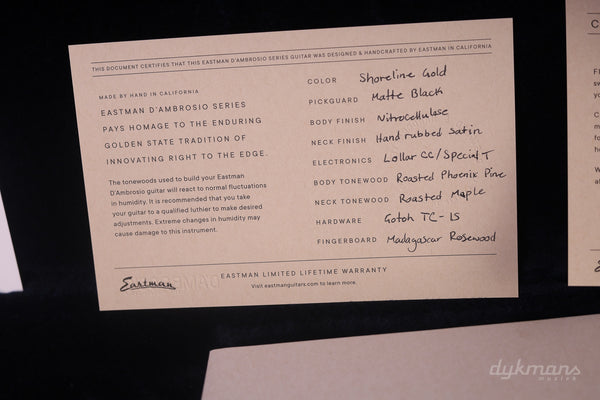 THIS DOCUMENT CERTIFIES THAT THIS EASTMAN D'AMBROSIO SERIES GUITAR WAS DESIGNED & HANDCRAFTED BY EASTMAN IN CALIFORNIA
MADE BY HAND IN CALIFORNIA
EASTMAN D'AMBROSIO SERIES
PAYS HOMAGE TO THE ENDURING
GOLDEN STATE TRADITION OF
INNOVATING RIGHT TO THE EDGE.
The tonewoods used to build your Eastman
D'Ambrosio guitar will react to normal fluctuations
in humidity. It is recommended that you take
your guitar to a qualified luthier to make desired
adjustments. Extreme changes in humidity may
cause damage to this instrument.
COLOR Shoreline Gold
PICKGUARD Matte Black
BODY FINISH Nitrocellulose
NECK FINISH Hand rubbed satin
ELECTRONICS Lollar CC/Special T
BODY TONEWOOD Roasted Phoenix Pine
NECK TONEWOOD Roasted Maple
HARDWARE Gotoh TC-1S
FINGERBOARD Madagascar Rosewood
Eastman
EASTMAN LIMITED LIFETIME WARRANTY
Visit eastmanguitars.com to learn more.
dykmans
muziek